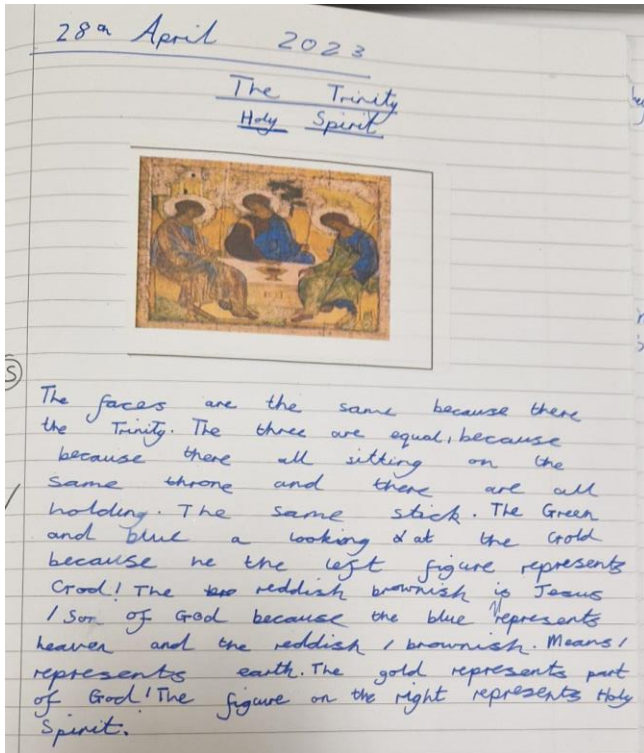 28th April 2023
The Trinity
Holy Spirit
S
The faces are the same because there
the Trinity. The three are equal, because
because there all sitting on the
same throne and there are all
holding. The same stick. The Green
and blue a looking at the Gold
because he the left figure represents
God! The reddish brownish is Jesus
/ Son of God because the blue represents
heaven and the reddish / brownish. Means /
represents earth. The gold represents part
of God! The figure on the right represents Holy
Spirit.